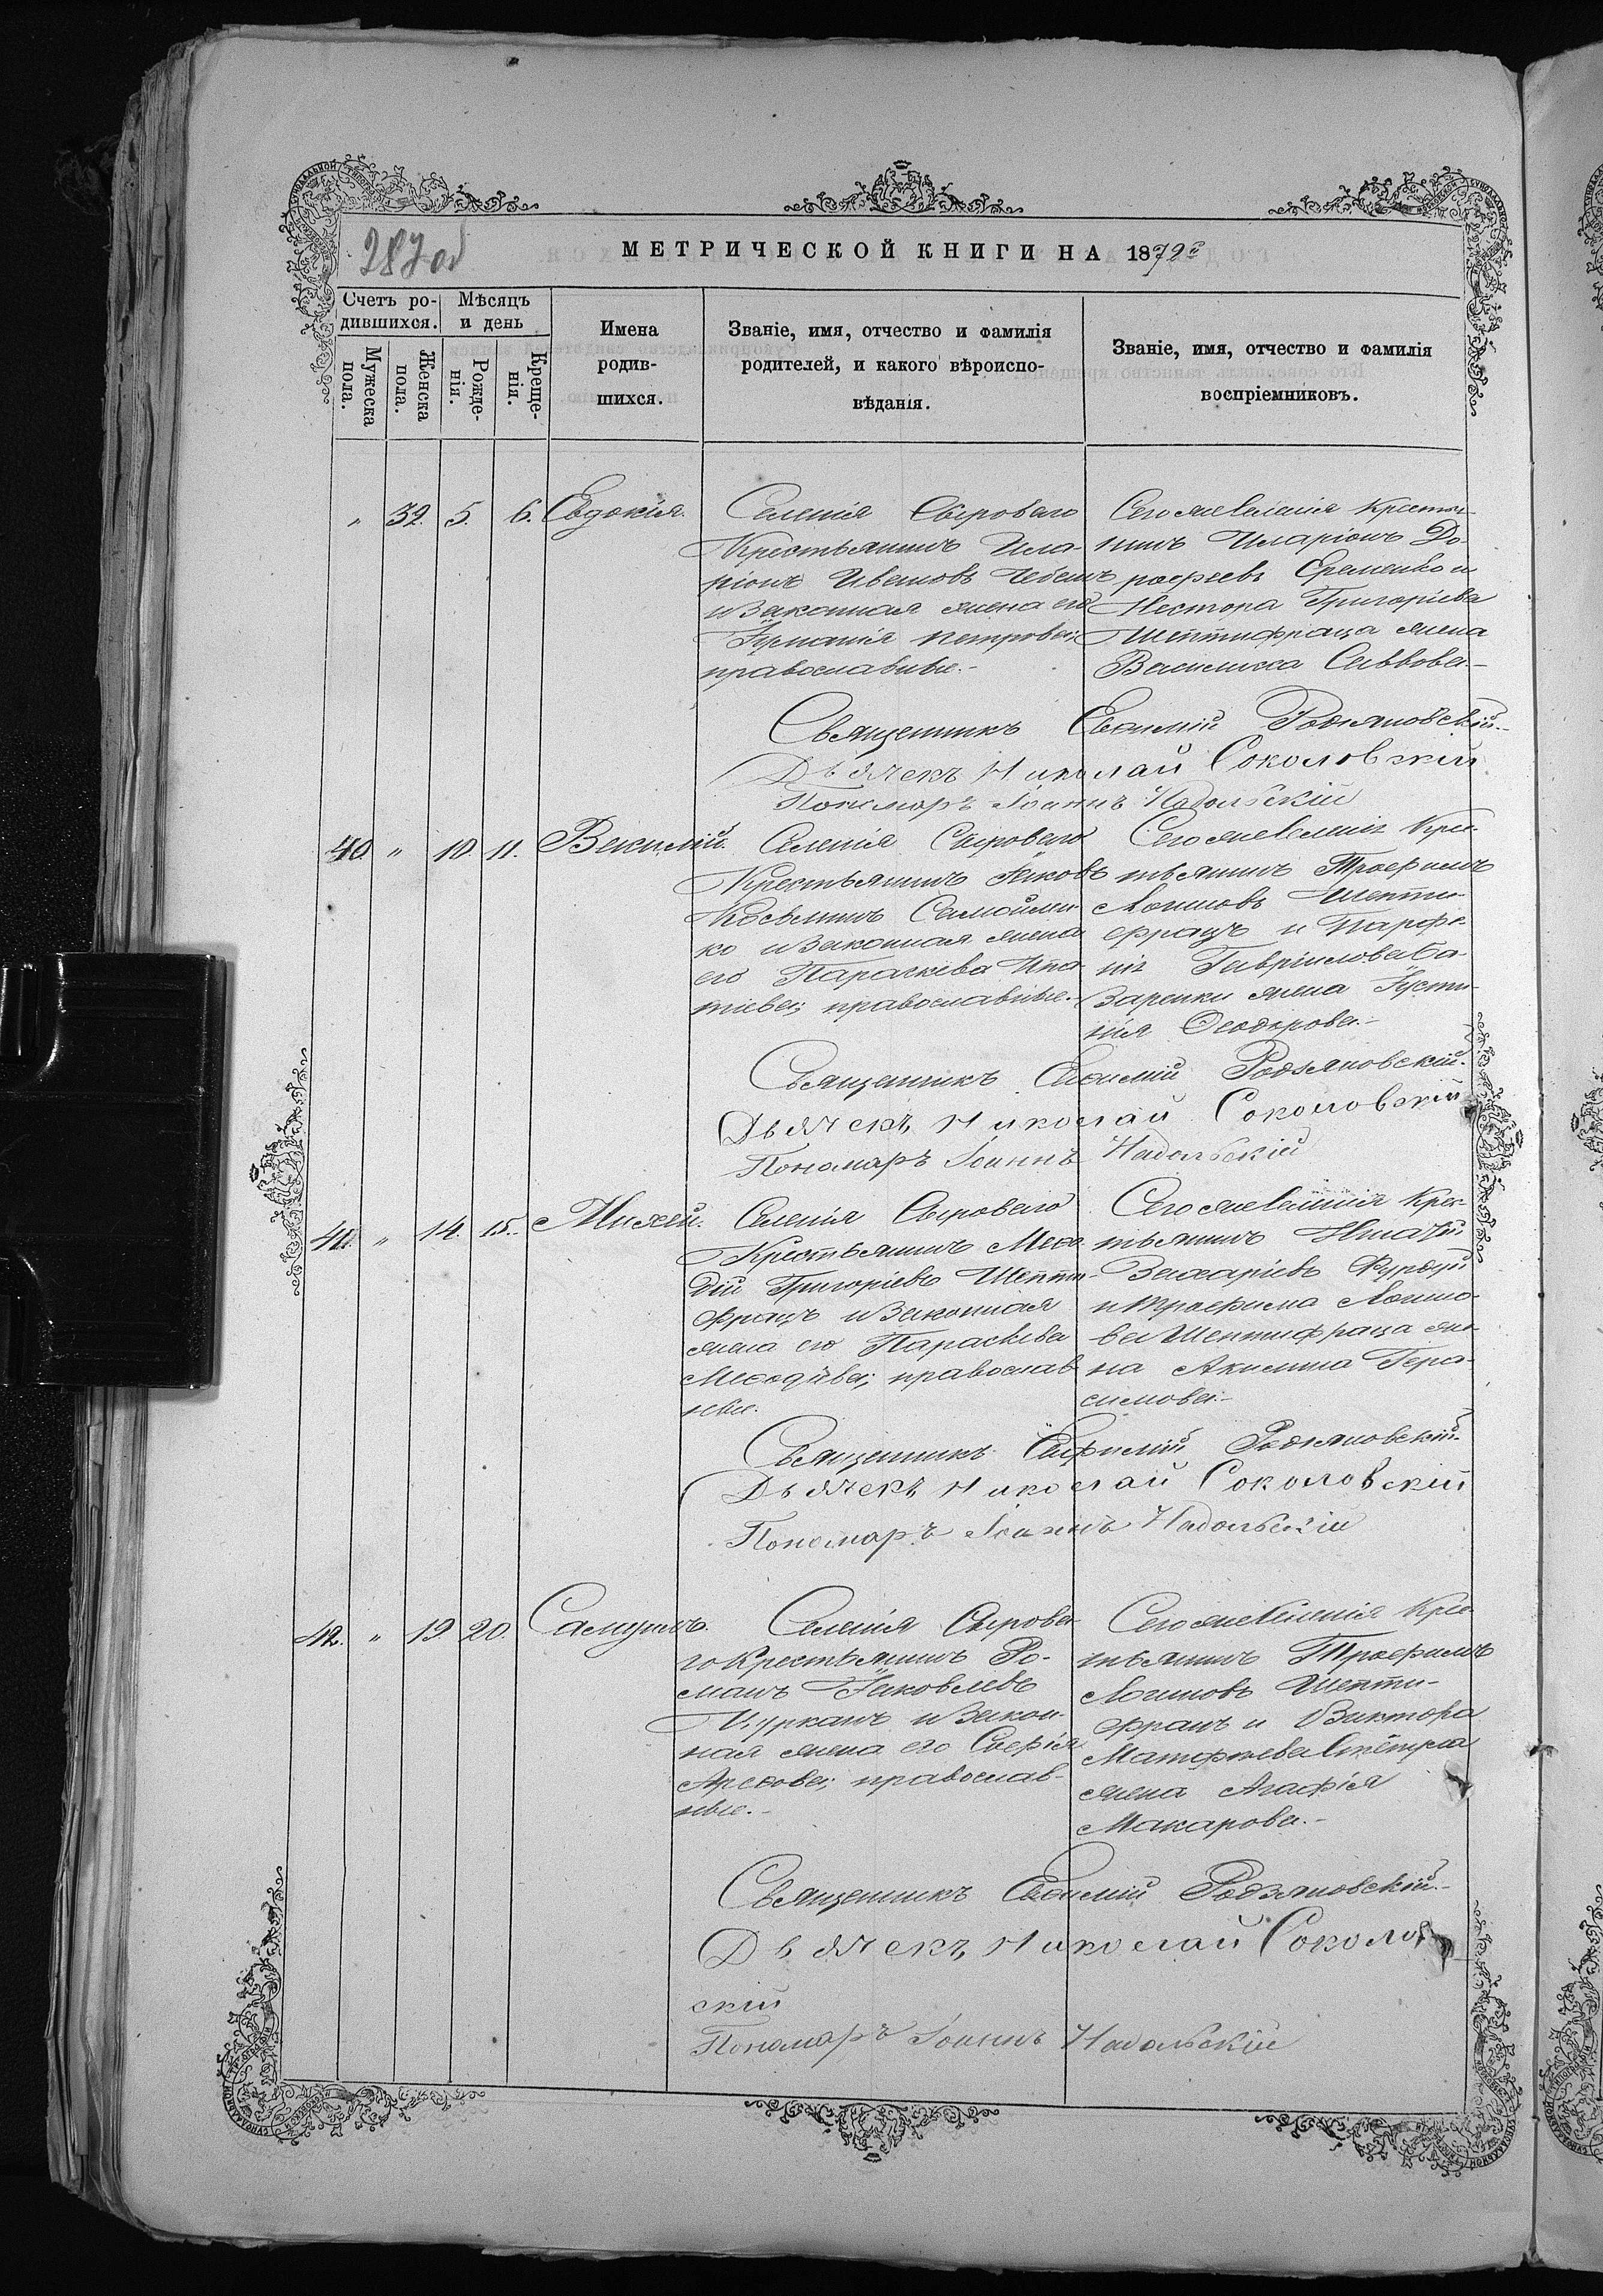 287об
МЕТРИЧЕСКОЙ КНИГИ НА 1879й
Счетъ ро-
дившихся.
Мѣсяцъ
и день
Мужеска
пола.
Женска
пола.
Рожде-
нія.
Креще-
нія.
Имена
родив-
шихся.
Званіе, имя, отчество и фамилія
родителей, и какого вѣроиспо-
вѣданія.
Званіе, имя, отчество и фамилія
воспріемниковъ.
" 32. 5. 6. Евдокія.
Селенія Сыроваго
Крестьянинъ Ила-
ріонъ Ивановъ Чебанъ
и Законная жена его
Іуліанія Петрова;
православные.-
Сего же Селенія Крестья-
нинъ Иларіонъ До-
рофеевъ Еременко и
Нестора Григоріева
Шептифраца жена
Василиса Саввова.-
Священникъ Евѳимій Родзяновскій.-
Дьячекъ Николай Соколовскій
Пономаръ Іоаннъ Надольскій
40 " 10. 11. Василій.
Селенія Сыроваго
Крестьянинъ Іаковъ
Касьянинъ Самойлен-
ко и Законная жена
его Параскева Ипа-
тіева; православные.-
Сего же Селенія Кре-
стьянинъ Трофимъ
Логиновъ Шепти-
фрацъ и Парфе-
нія Гавріилова Ба-
заренки жена Іусти-
нія Ѳеодорова.-
Священникъ Евѳимій Родзяновскій.
Дьячекъ Николай Соколовскій
Пономаръ Іоаннъ Надольскій
41. " 14. 15. Михей.
Селенія Сыроваго
Крестьянинъ Меѳо-
дій Григоріевъ Шепти-
фрацъ и Законная
жена его Параскева
Меѳодіева; православ-
ные.
Сего же Селенія Крес-
тьянинъ Игнатій
Захаріевъ Фурдуй
и Трофима Логино-
ва Шептифраца же-
на Акилина Гера-
симова.-
Священникъ Евфимій Родзяновскій.
Дьячекъ Николай Соколовскій
Пономаръ Іоаннъ Надольскій
42. " 19. 20. Самуилъ.
Селенія Сырова-
го Крестьянинъ Ро-
манъ Іаковлевъ
Цурканъ и Закон-
ная жена его Софія
православ-
ные.-
Сего же Селенія Кре-
стьянинъ Трофимъ
Логиновъ Шепти-
фрацъ и Виктора
Матфеева
жена Агафія
Макарова.-
Священникъ Евѳимій Родзяновскій.-
Дьячекъ Николай Соколов
скій
Пономаръ Іоаннъ Надольскій